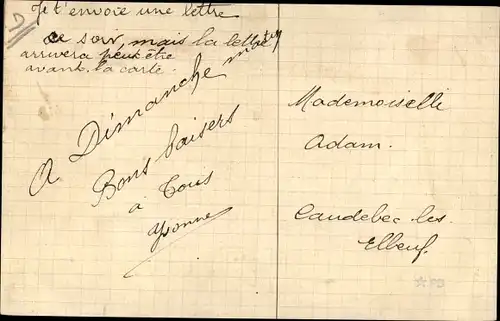 Je t'envoie une lettre
ce soir mais la lettre
arrivera peut être
avant la carte.
A Dimanche matin
Bons baisers
à Tous
Yvonne
Mademoiselle
Adam.
Caudebec les.
Elbeuf.